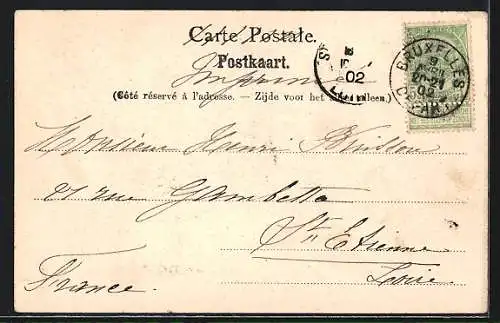 Carte Postale.
Postkaart.
Imprimé
(Côté réservé à l'adresse. — Zijde voor het adres alleen.)
02
BRUXELLES
9
02
DEPART
Monsieur Henri
21 rue Gambetta
St Etienne
Loire.
France.